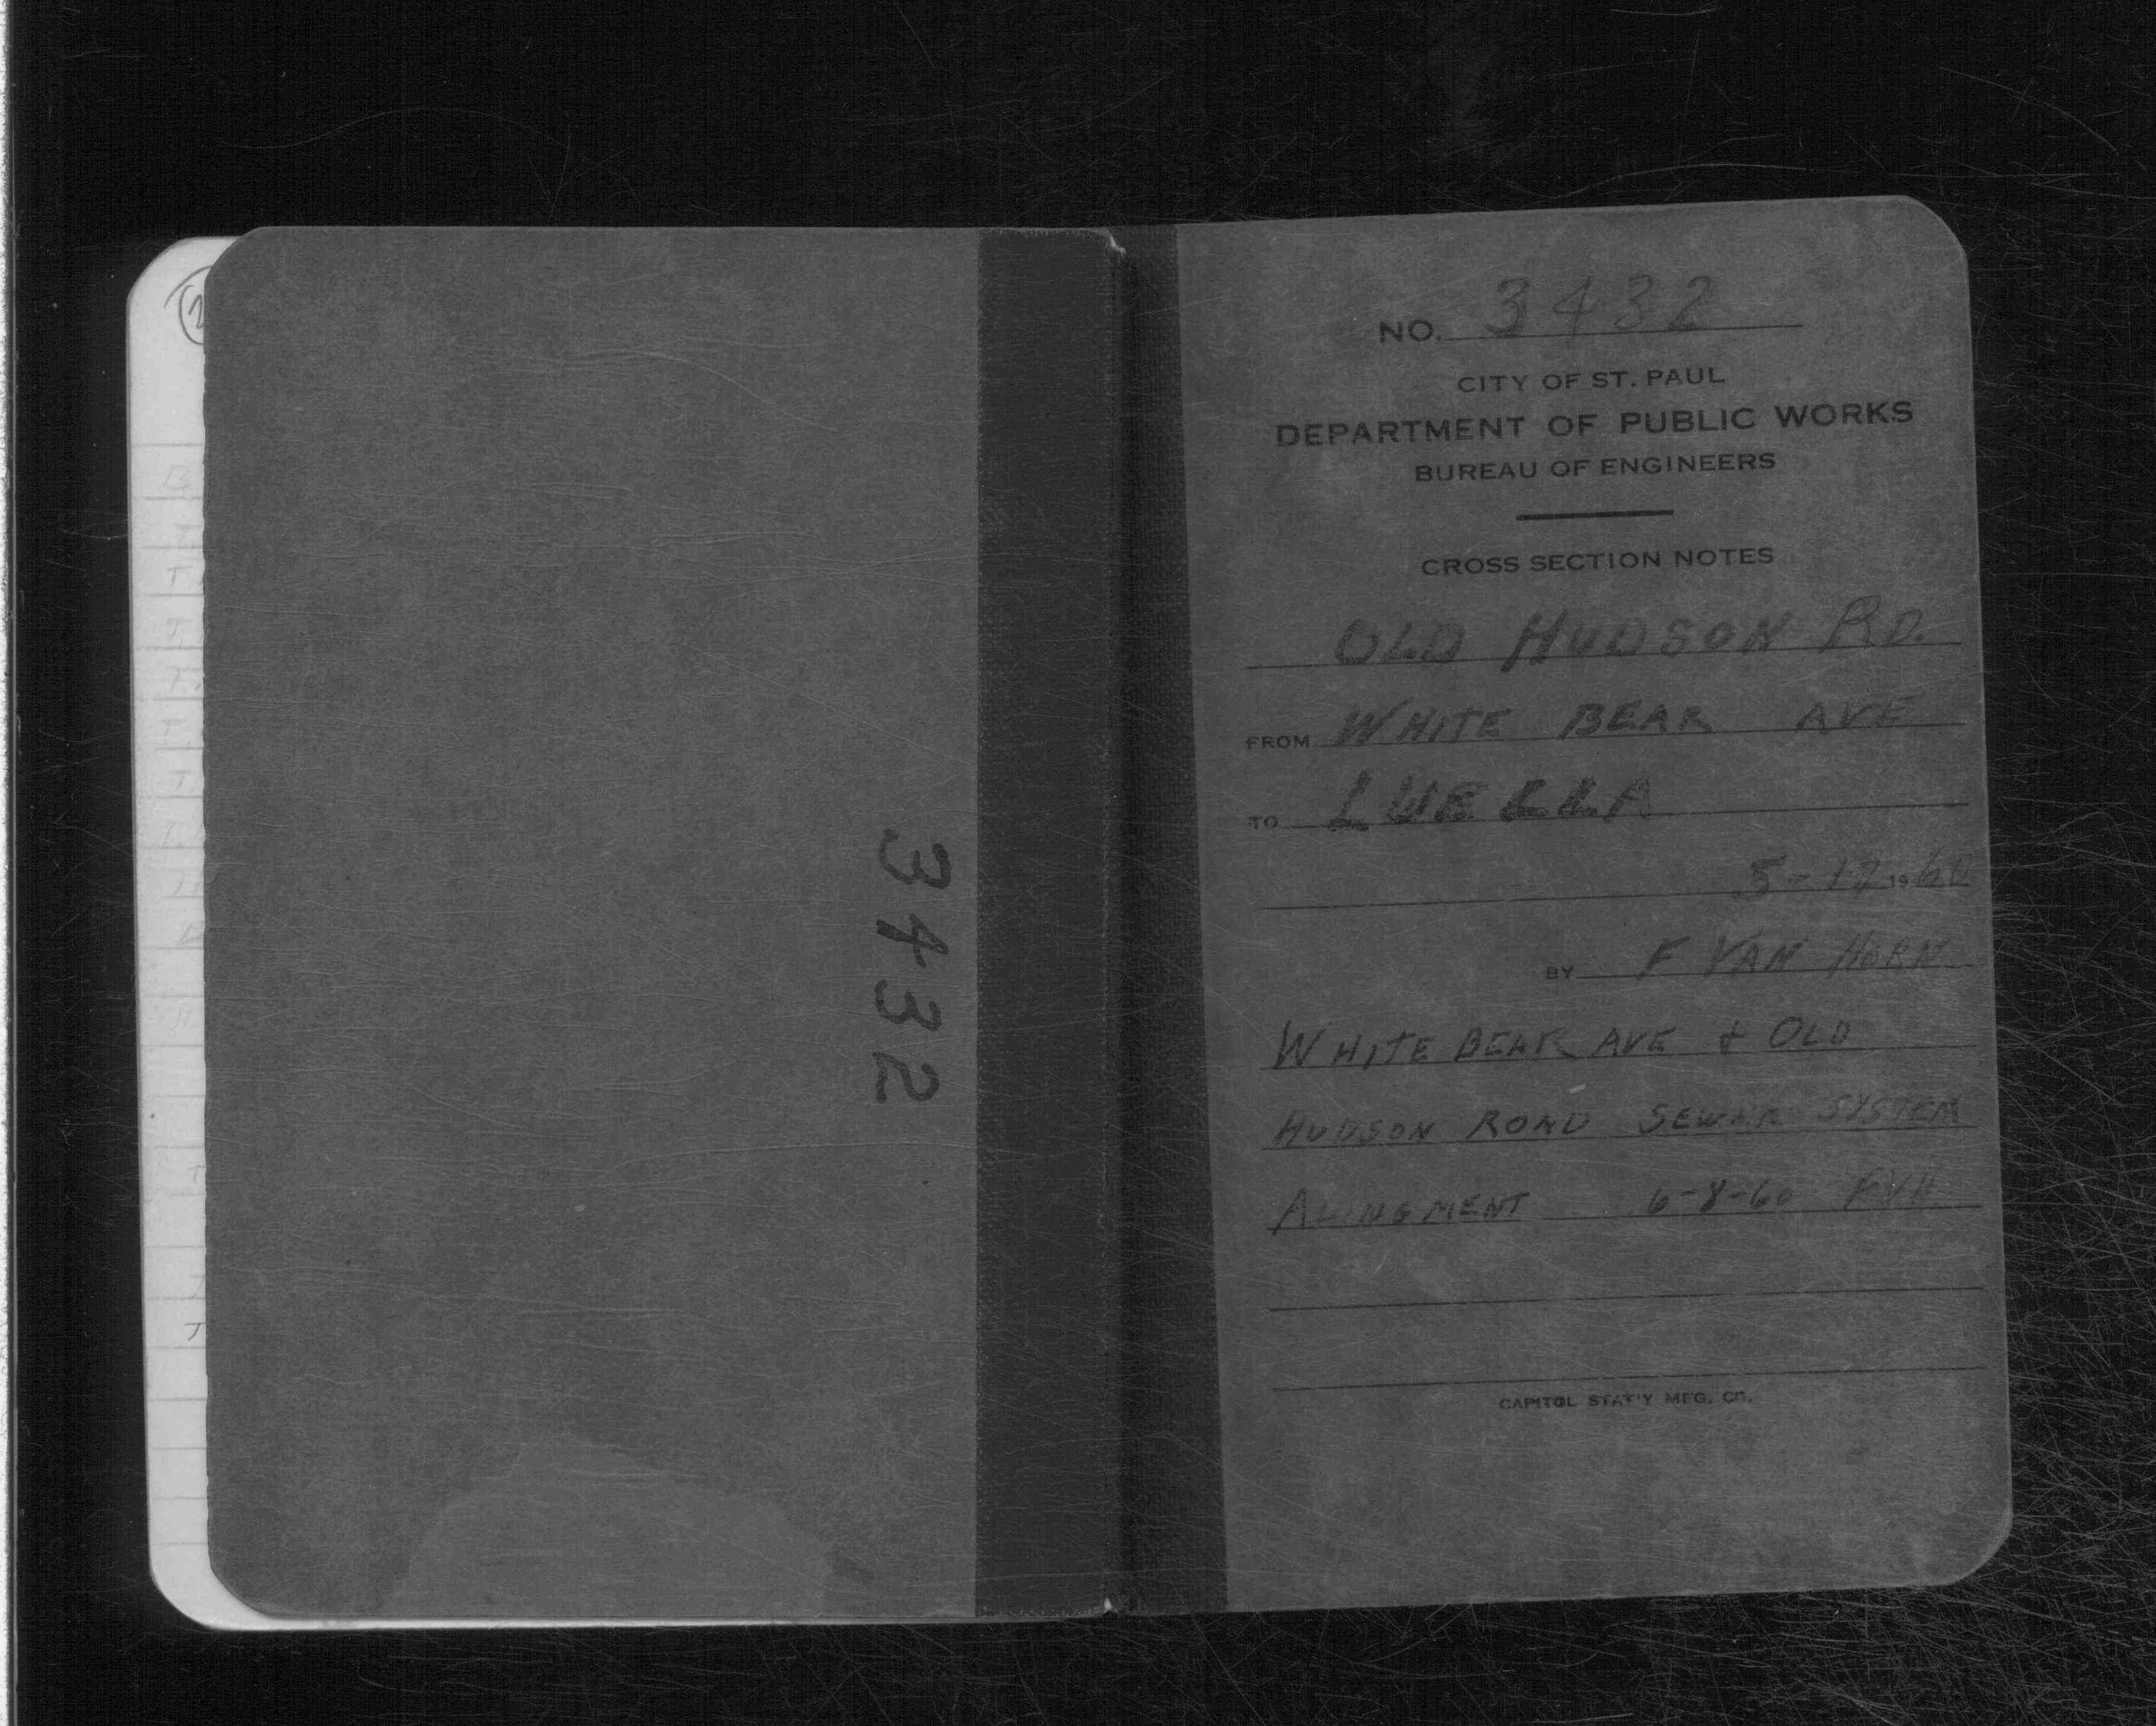 3432
NO. 3432
CITY OF ST. PAUL
DEPARTMENT OF PUBLIC WORKS
BUREAU OF ENGINEERS
CROSS SECTION NOTES
OLD HUDSON RD.
FROM WHITE BEAR AVE
TO LUELLA
5-17 1960
BY F VAN HORN
WHITE BEAR AVE + OLD
HUDSON ROAD SEWER SYSTEM
ALINGMENT 6-8-60 FVH
CAPITOL STAT'Y MFG. CO.